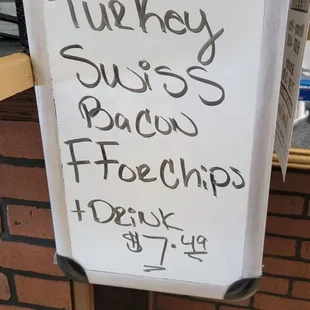 Turkey
Swiss
Bacon
FF or Chips
+ Drink
$7.49